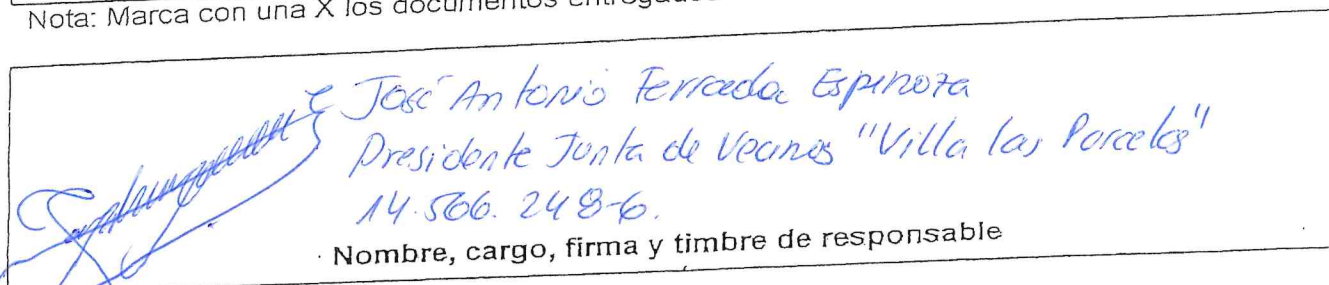 Nota: Marca con una X los documentos entregados
José Antonio Ferrada Espinoza
Presidente Junta de Vecinos "Villa las Parcelas"
14.566.248-6.
Nombre, cargo, firma y timbre de responsable